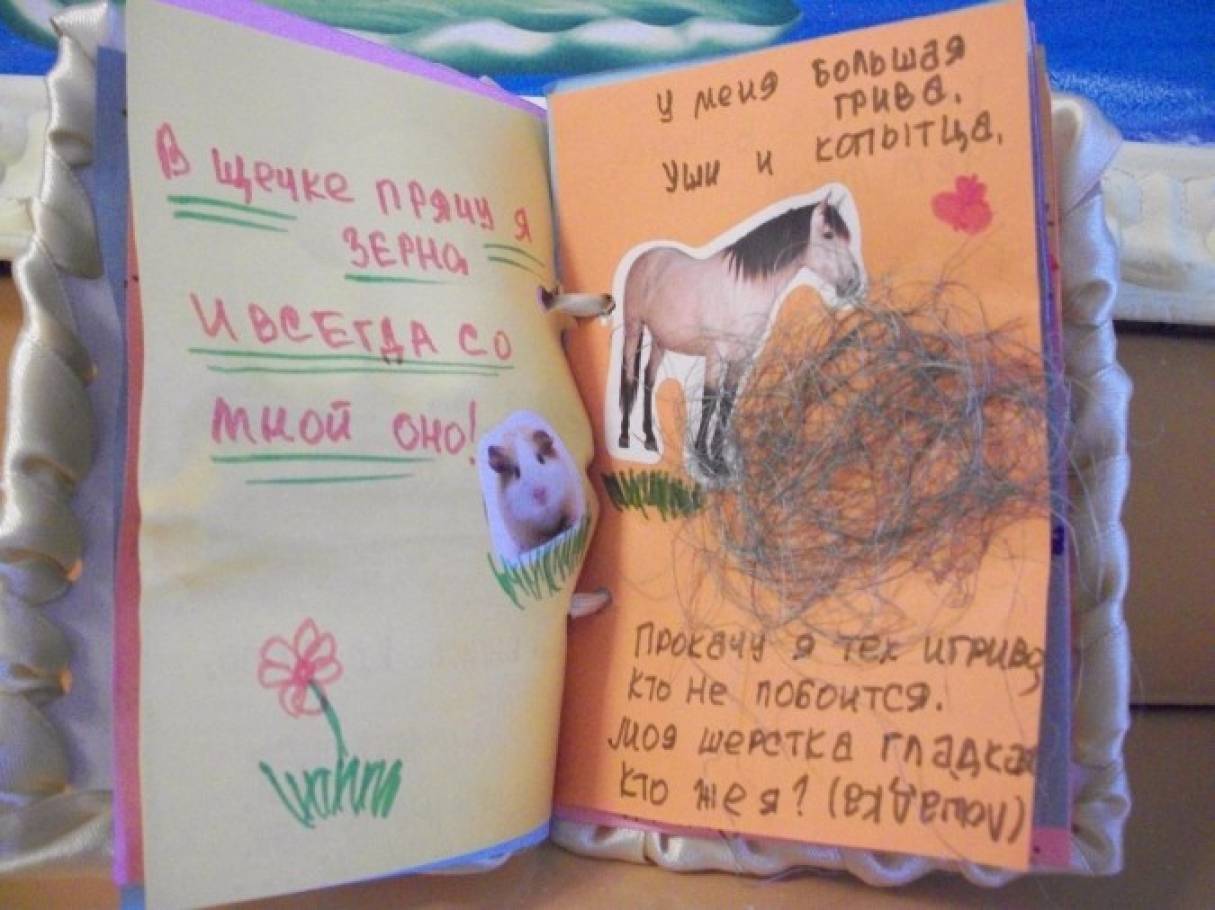 В щечке прячу я
зерна
И всегда со
мной оно!
У меня большая
грива,
Уши и копытца,
Прокачу я тех игриво,
Кто не побоится.
Моя шерстка гладка
Кто же я? (Лошадка)